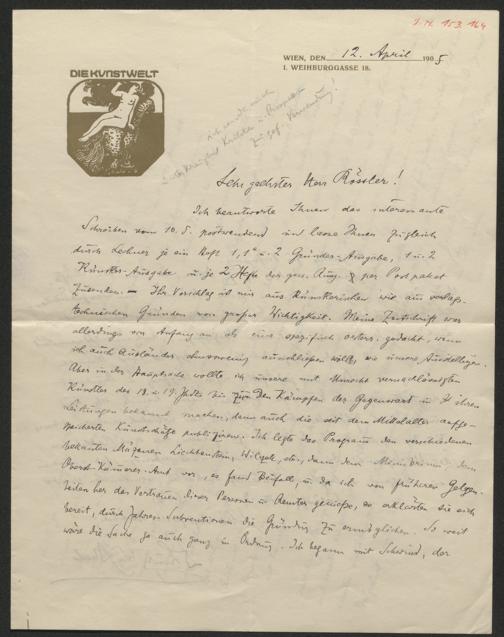 I. N. 153.164
WIEN, DEN 12. April 1905
I. WEIHBURGGASSE 18.
DIE KVNSTWELT
Sehr geehrter Herr Rössler!
Ich beantworte Ihnen das interessante
Schreiben vom 10. d. postwendend und lasse Ihnen zugleich
durch Lechner je ein Heft 1, 1a u. 2 Gründer-Ausgabe, 1 u. 2
Künstler-Ausgabe u. je 2 Hefte der gew. Ausg. per Postpaket
zusenden. — Ihr Vorschlag ist mir aus künstlerischen wie aus verlags-
technischen Gründen von großer Wichtigkeit. Meine Zeitschrift war
allerdings von Anfang an als eine spezifisch österr. gedacht, wenn
ich auch Ausländer ausschließen wollte, wie unsere Ausstellungen.
Aber in der Hauptsache wollte ich unsere mit Unrecht vernachlässigten
Künstler des 18. u. 19. Jhdts bis zu den Kämpfern der Gegenwart in ihren
Leistungen bekannt machen, dann auch die seit dem Mittelalter aufge-
speicherten Kunstschätze publizieren. Ich legte das Programm den verschiedenen
bekannten Mäzenen Liechtenstein, Wilczek, etc., dann dem Ministerium, dem
Oberst-Kämmerer-Amt vor, es fand Beifall, u. da ich von früheren Gelegen-
heiten her das Vertrauen dieser Personen u. Aemter genieße, so erklärten sie sich
bereit, durch Jahres-Subventionen die Gründung zu ermöglichen. So weit
wäre die Sache ja auch ganz in Ordnung. Ich begann mit Schwind, der